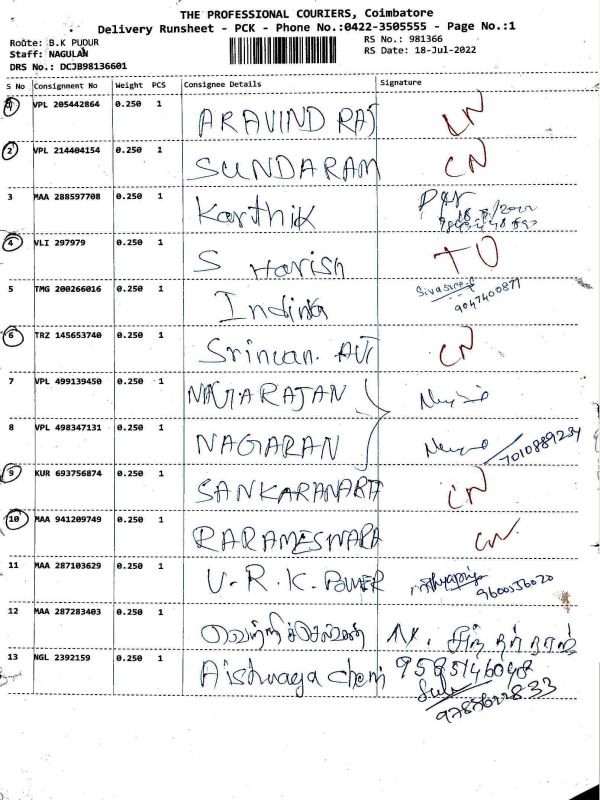 THE PROFESSIONAL COURIERS, Coimbatore
Delivery Runsheet - PCK - Phone No.:0422-3505555 - Page No.:1
Route: B.K PUDUR RS No.: 981366
Staff: NAGULAN RS Date: 18-Jul-2022
DRS No.: DCJB98136601
S No Consignment No Weight PCS Consignee Details Signature
1 VPL 205442864 0.250 1 ARAVIND RAJ CN
2 VPL 214404154 0.250 1 SUNDARAM CN
3 MAA 288597708 0.250 1 Karthik
4 VLI 297979 0.250 1 S Harish TO
5 TMG 200266016 0.250 1 9047400877
6 TRZ 145653740 0.250 1 CN
7 VPL 499139450 0.250 1 NAGARAJAN
8 VPL 498347131 0.250 1 NAGARAN 7010889234
9 KUR 693756874 0.250 1 SANKARANARA CN
10 MAA 941209749 0.250 1 PARAMESWARA CN
11 MAA 287103629 0.250 1 V.R.K. POWER 9600056020
12 MAA 287283403 0.250 1 வெற்றிச்செல்வன்
13 NGL 2392159 0.250 1 Aishwarya chem 9585146048